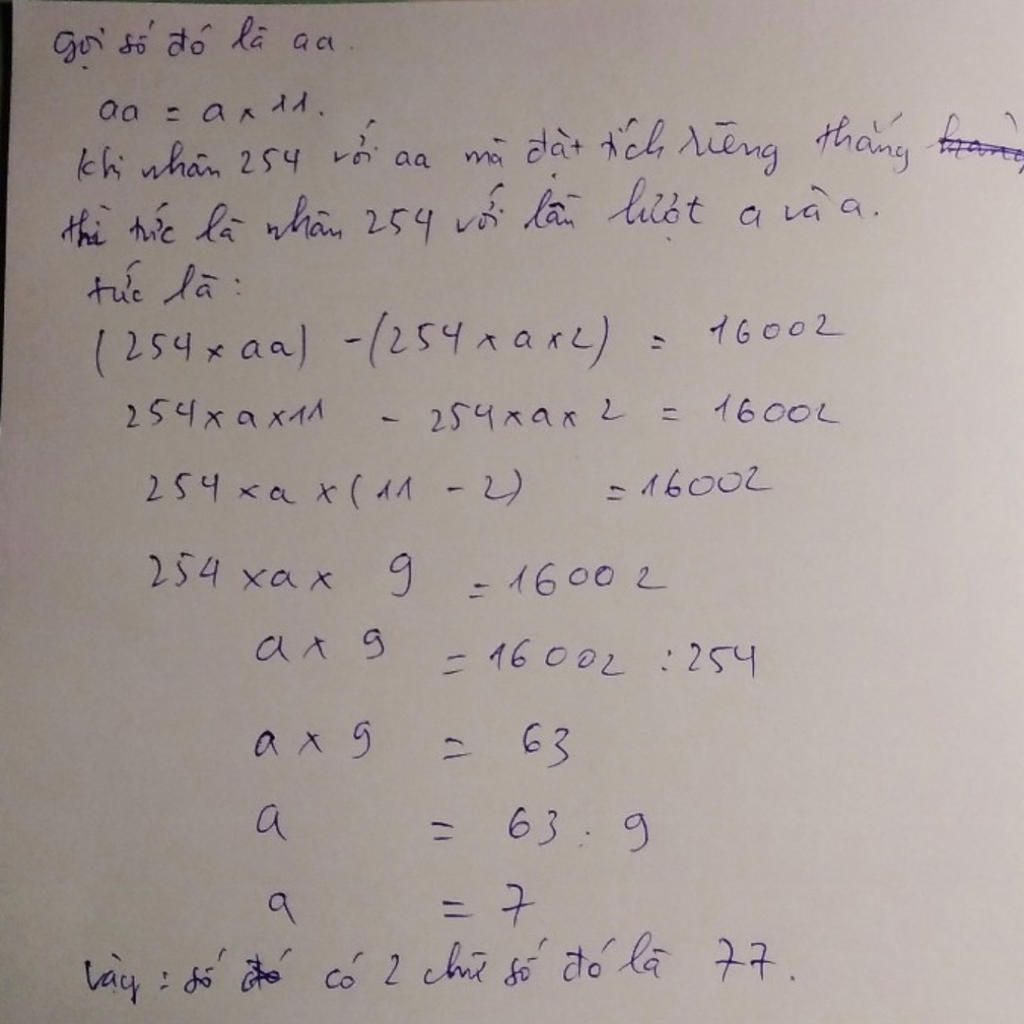 Gọi số đó là aa.
aa = a x 11.
Khi nhân 254 với aa mà đặt tích riêng thẳng
thì tức là nhân 254 với lần lượt a và a.
tức là:
(254 x aa) - (254 x a x 2) = 16002
254 x a x 11 - 254 x a x 2 = 16002
254 x a x (11 - 2) = 16002
254 x a x 9 = 16002
a x 9 = 16002 : 254
a x 9 = 63
a = 63 : 9
a = 7
Vậy: số có 2 chữ số đó là 77.